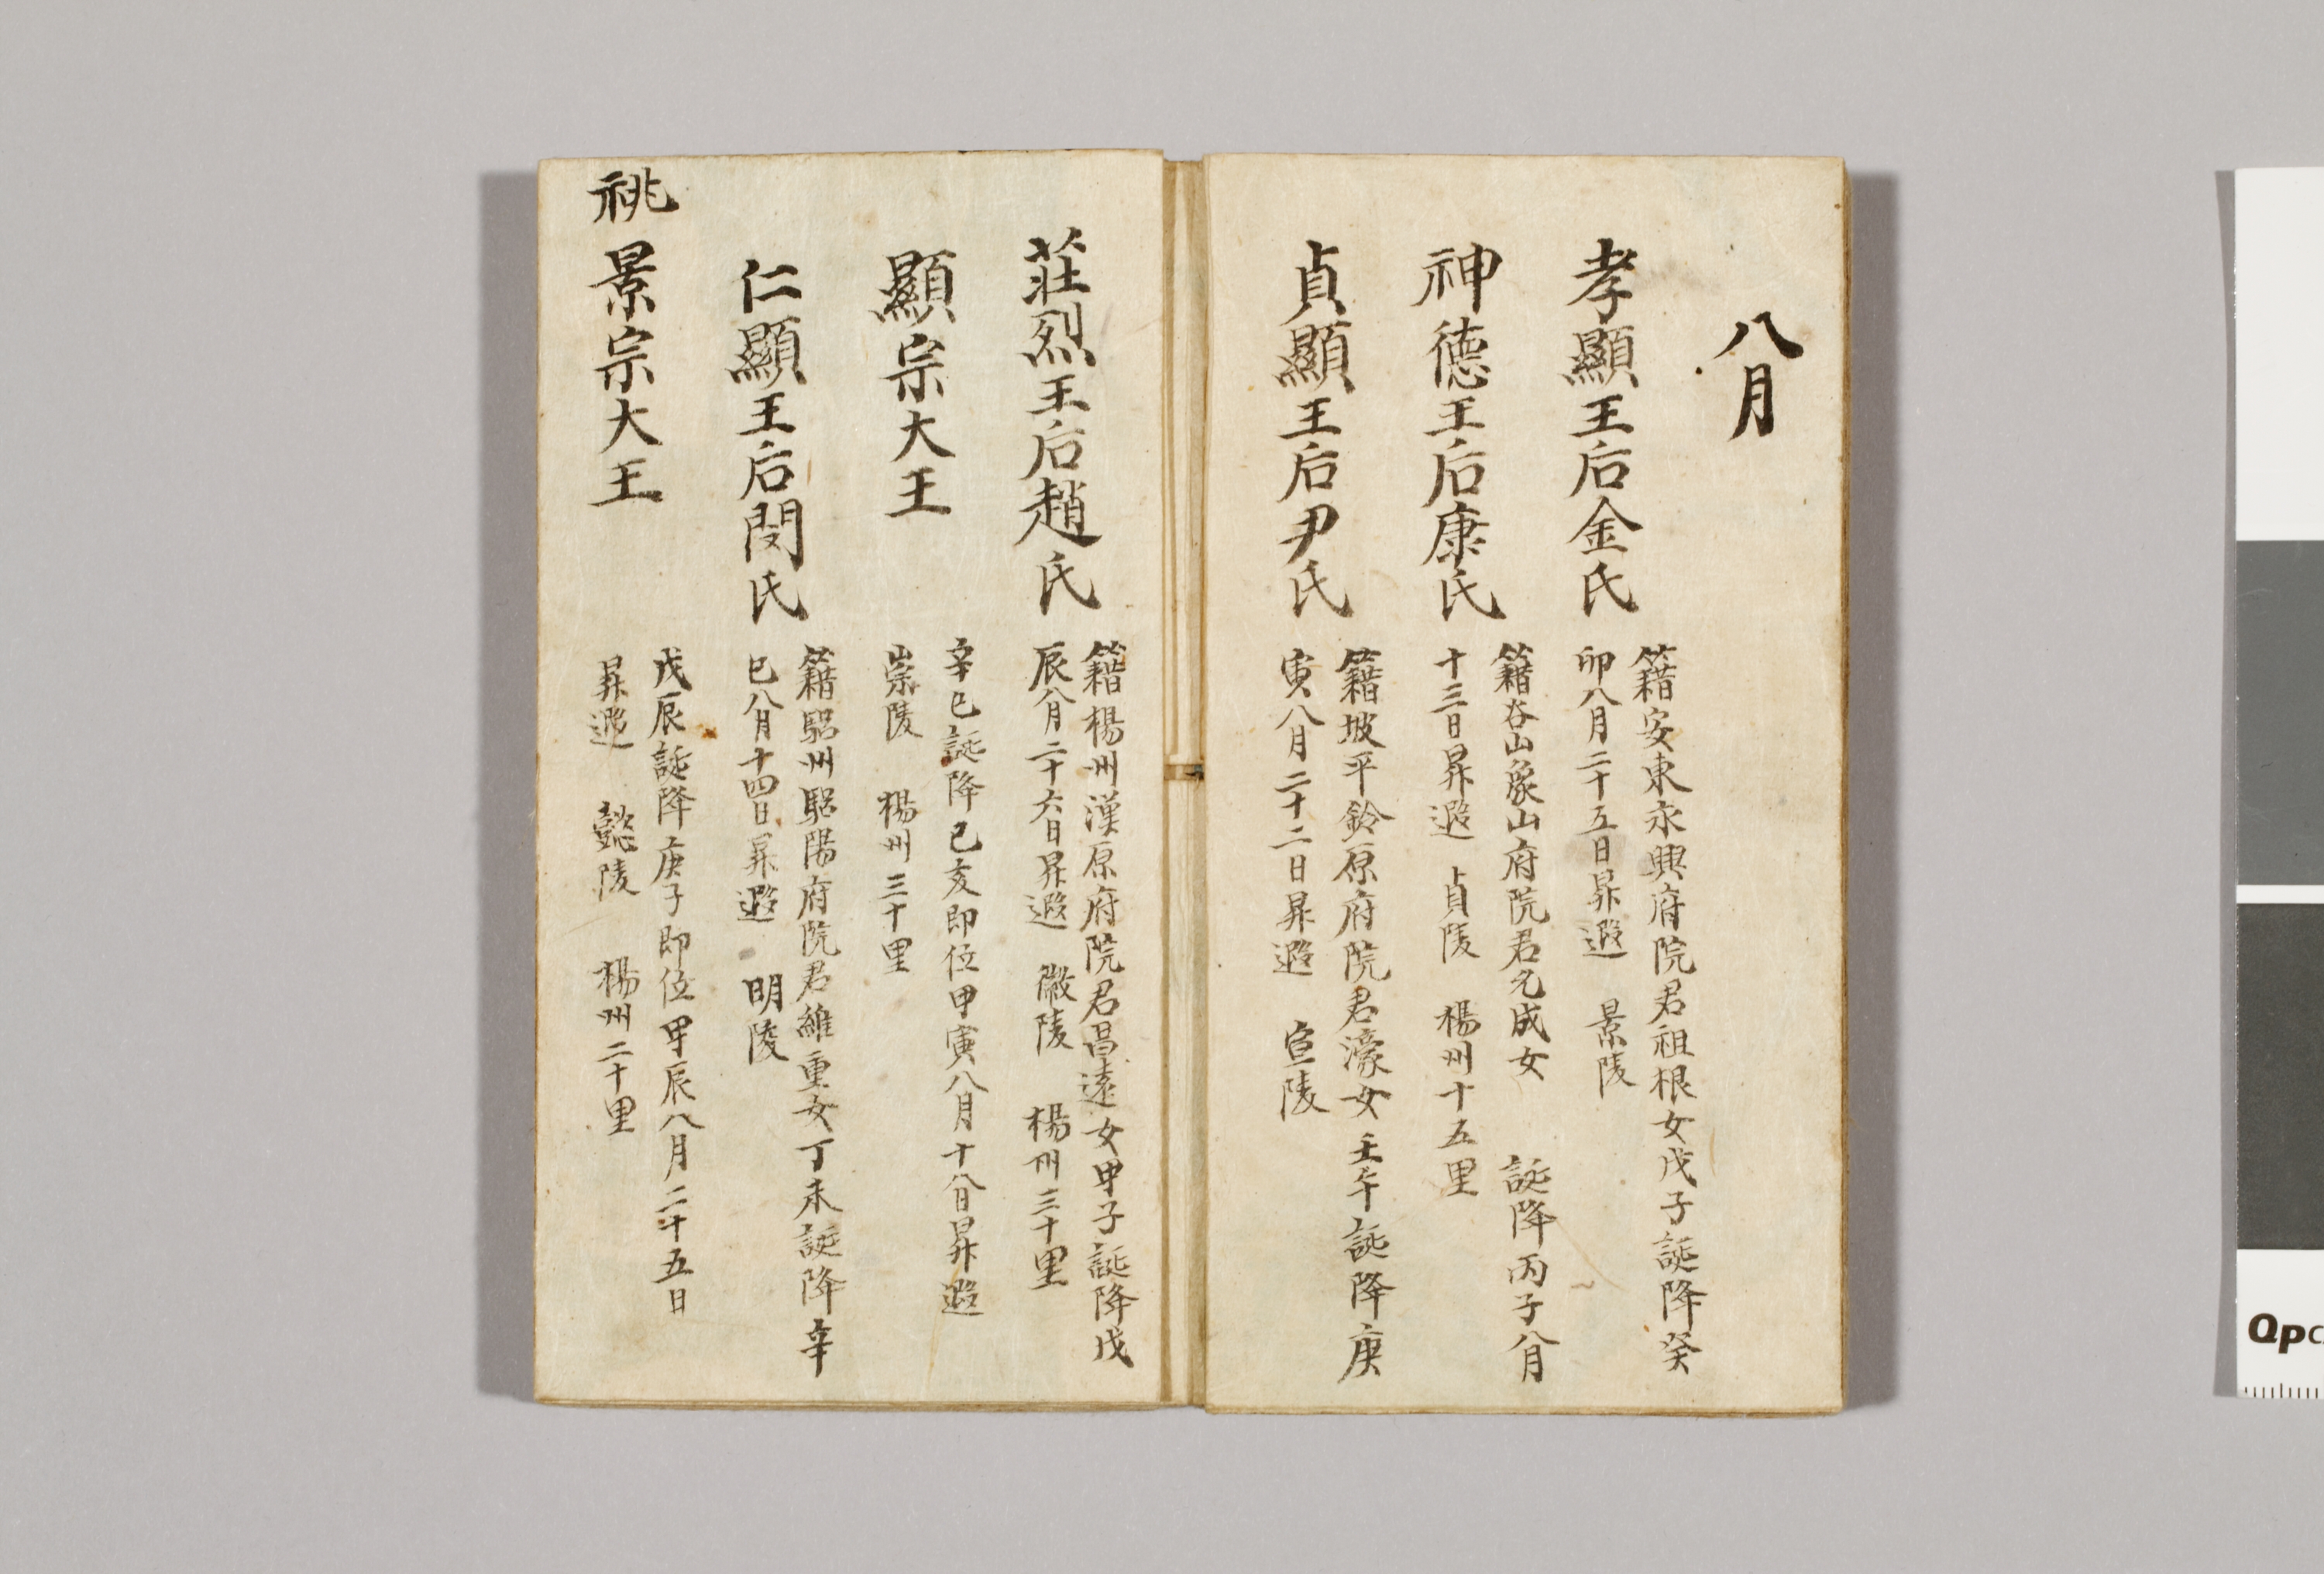 八月
孝顯王后金氏
籍安東永興府院君祖根女戊子誕降癸
卯八月二十五日昇遐 景陵
神德王后康氏
籍谷山象山府院君允成女 誕降丙子八月
十三日昇遐 貞陵 楊州十五里
貞顯王后尹氏
籍坡平鈴原府院君濠女壬午誕降庚
寅八月二十二日昇遐 宣陵
莊烈王后趙氏
籍楊州漢原府院君昌遠女甲子誕降戊
辰八月二十六日昇遐 徽陵 楊州三十里
顯宗大王
辛巳誕降己亥即位甲寅八月十八日昇遐
崇陵 楊州三十里
仁顯王后閔氏
籍驪州驪陽府院君維重女丁未誕降辛
巳八月十四日昇遐 明陵
祧 景宗大王
戊辰誕降庚子即位甲辰八月二十五日
昇遐 懿陵 楊州二十里
QPC